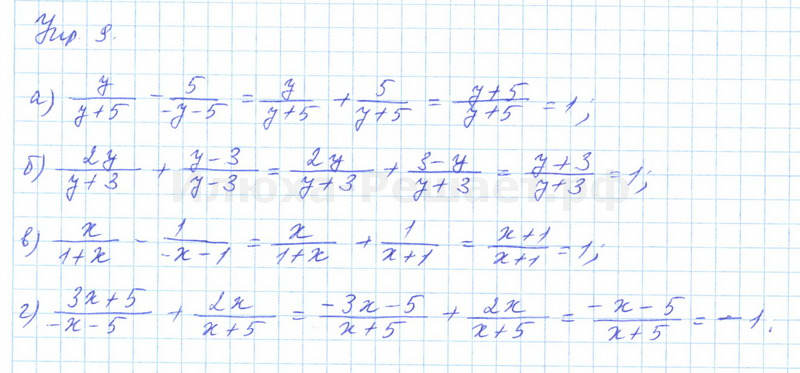 Упр 9.
а) y/(y+5) - 5/(-y-5) = y/(y+5) + 5/(y+5) = (y+5)/(y+5) = 1;
б) 2y/(y+3) + (y-3)/(y-3) = 2y/(y+3) + (3-y)/(y+3) = (y+3)/(y+3) = 1;
в) x/(1+x) - 1/(-x-1) = x/(1+x) + 1/(x+1) = (x+1)/(x+1) = 1;
г) (3x+5)/(-x-5) + 2x/(x+5) = (-3x-5)/(x+5) + 2x/(x+5) = (-x-5)/(x+5) = -1.